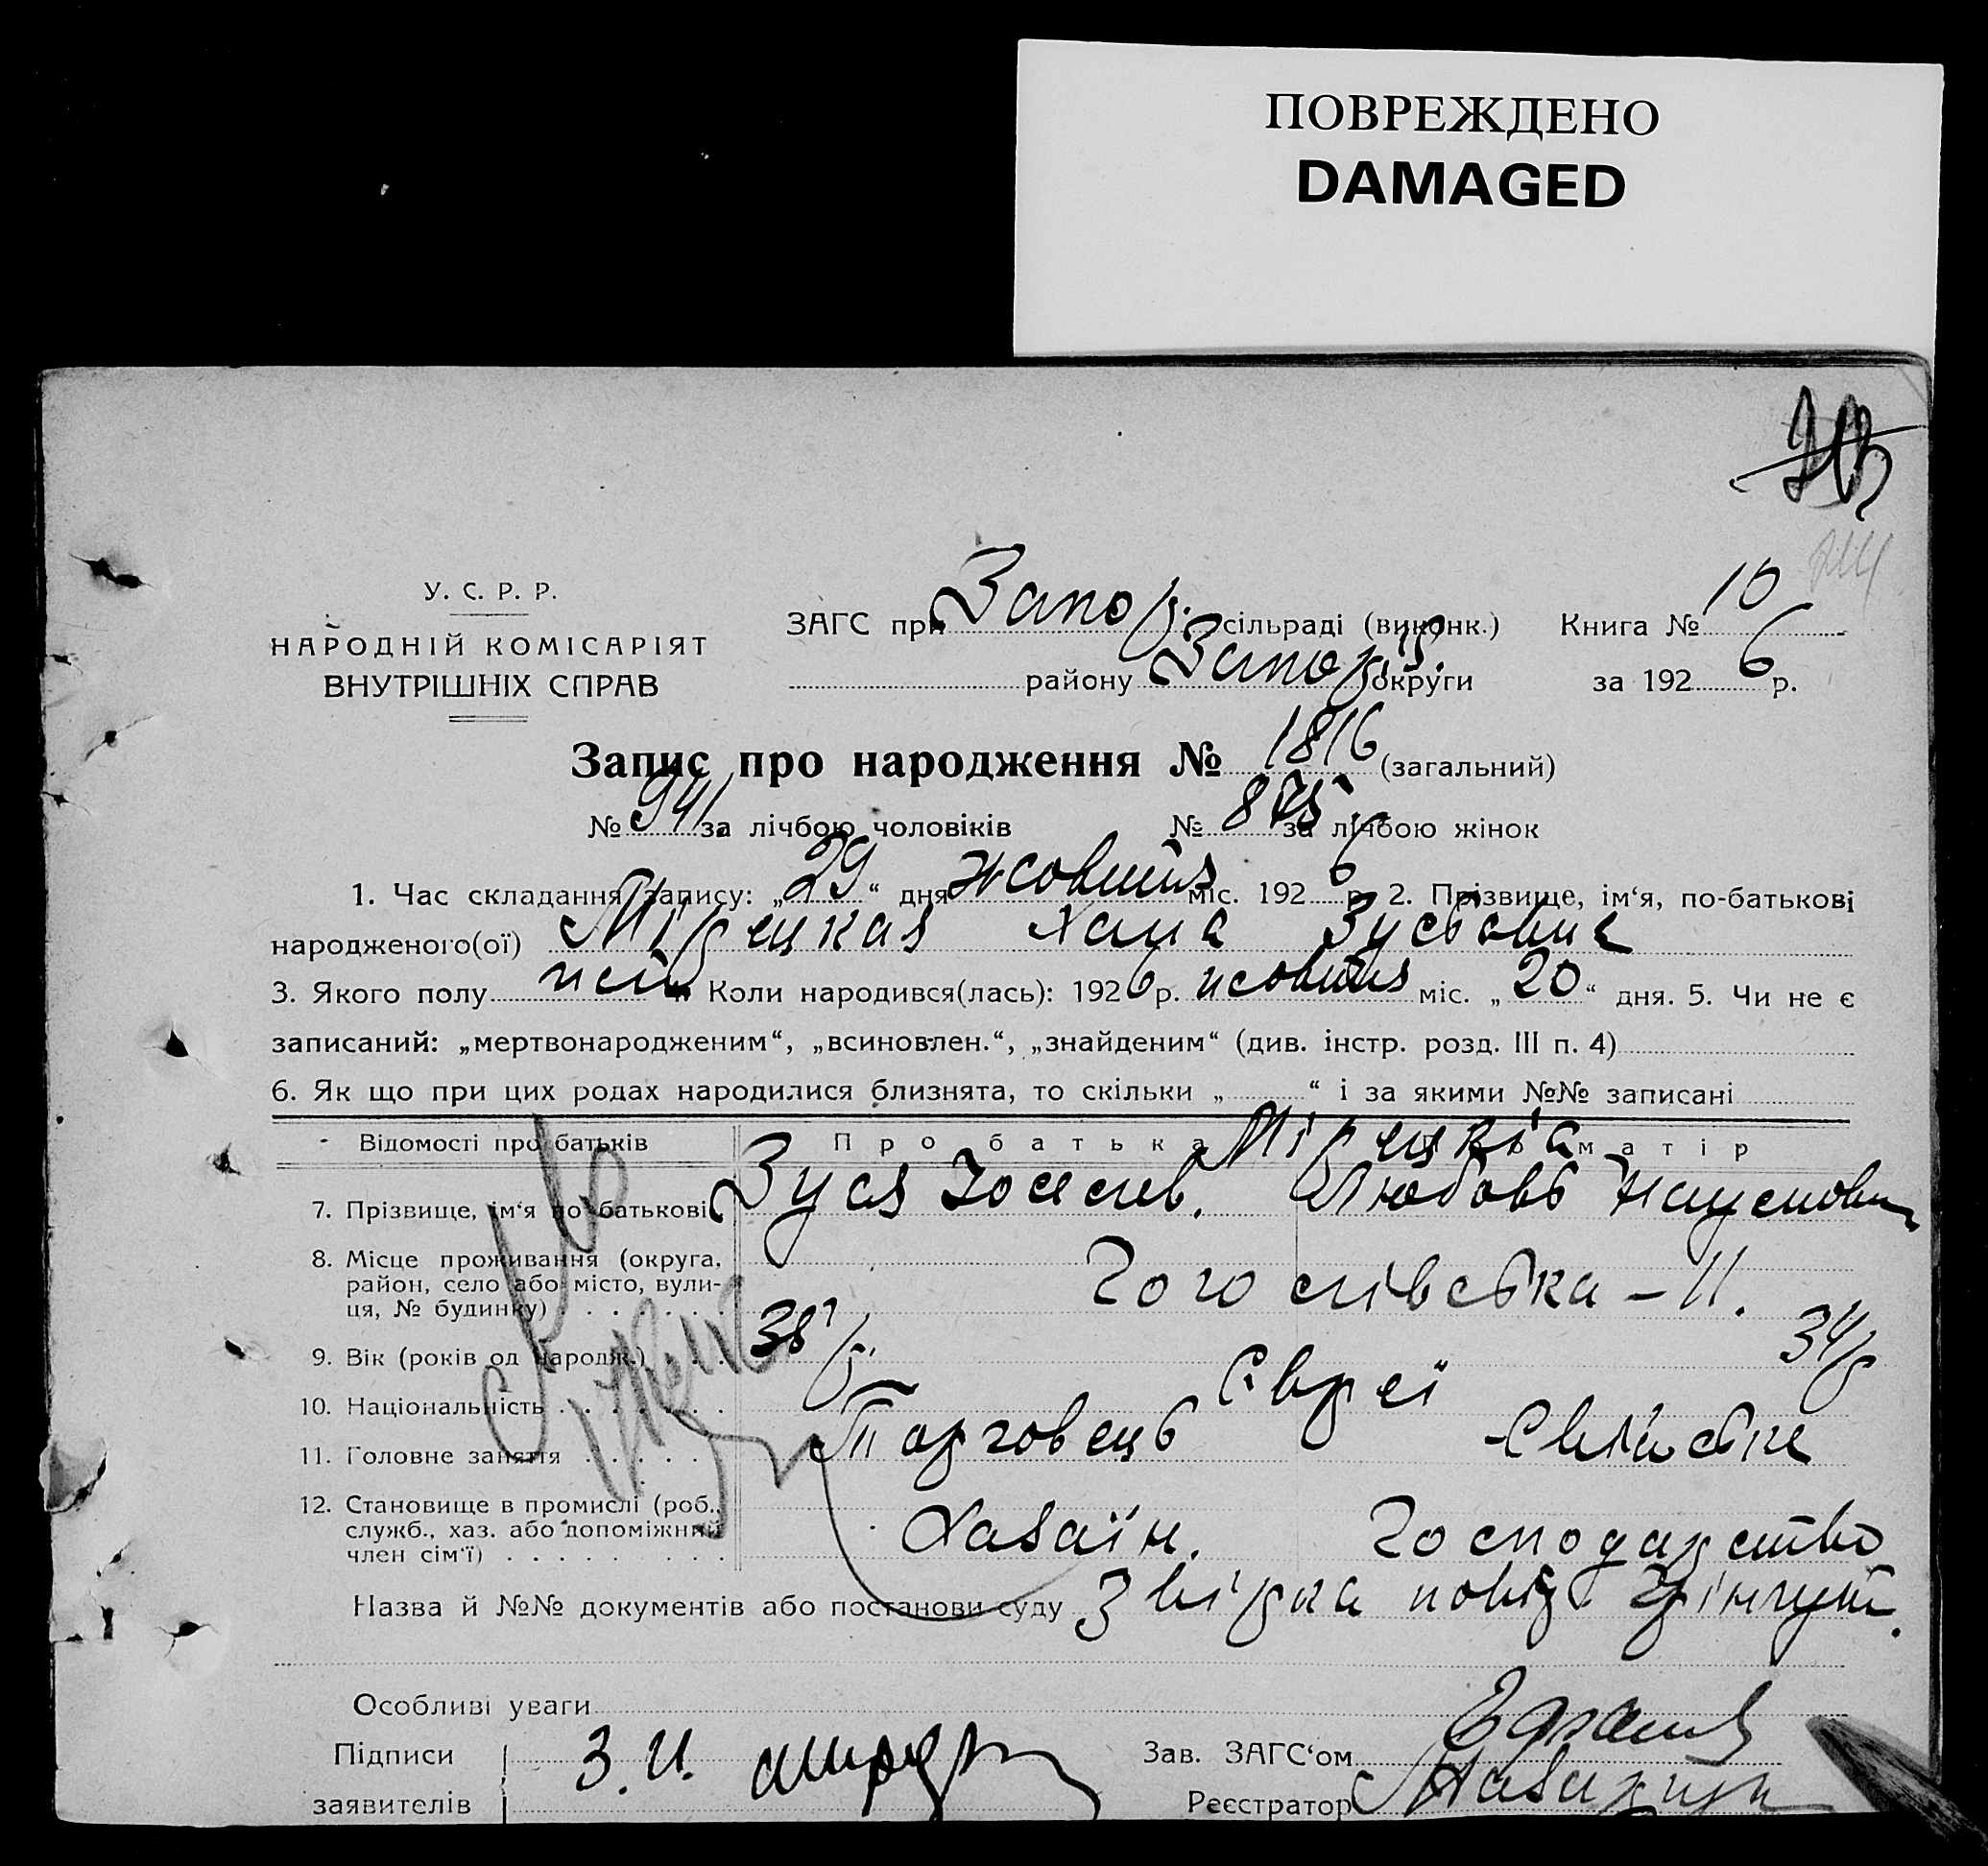 ПОВРЕЖДЕНО
DAMAGED
У. С. Р. Р.
НАРОДНІЙ КОМІСАРІЯТ
ВНУТРІШНІХ СПРАВ
ЗАГС при Запор. сільраді (виконк.) Книга № 10
району Запор. округи за 1926 р.
Запис про народження № 1816 (загальний)
№ 941 за лічбою чоловіків № 875 за лічбою жінок
1. Час складання запису: „29“ дня жовтня міс. 1926 р. 2. Прізвище, ім‘я, по-батькові
народженого(ої) Мірецкая Хана Зусьовна
3. Якого полу Коли народився(лась): 1926 р. жовтня міс. „20“ дня. 5. Чи не є
записаний: „мертвонародженим“, „всиновлен.“, „знайденим“ (див. інстр. розд. III п. 4)
6. Як що при цих родах народилися близнята, то скільки „ “ і за якими №№ записані
Відомості про батьків Про батька матір
Мірецкіа
7. Прізвище, ім‘я по-батькові Зуся Іоселев. Любовь Наумовн
8. Місце проживання (округа,
район, село або місто, вули-
ця, № будинку) Гоголівська – 11.
9. Вік (років од народж.) 38 34
10. Національність Євреї
11. Головне заняття Торговець
12. Становище в промислі (роб.,
служб., хаз. або допоміжний
член сім‘ї) Хазаїн. Господарство
Назва й №№ документів або постанови суду
Особливі уваги
Підписи З. И. Зав. ЗАГС‘ом
заявителів Реєстратор